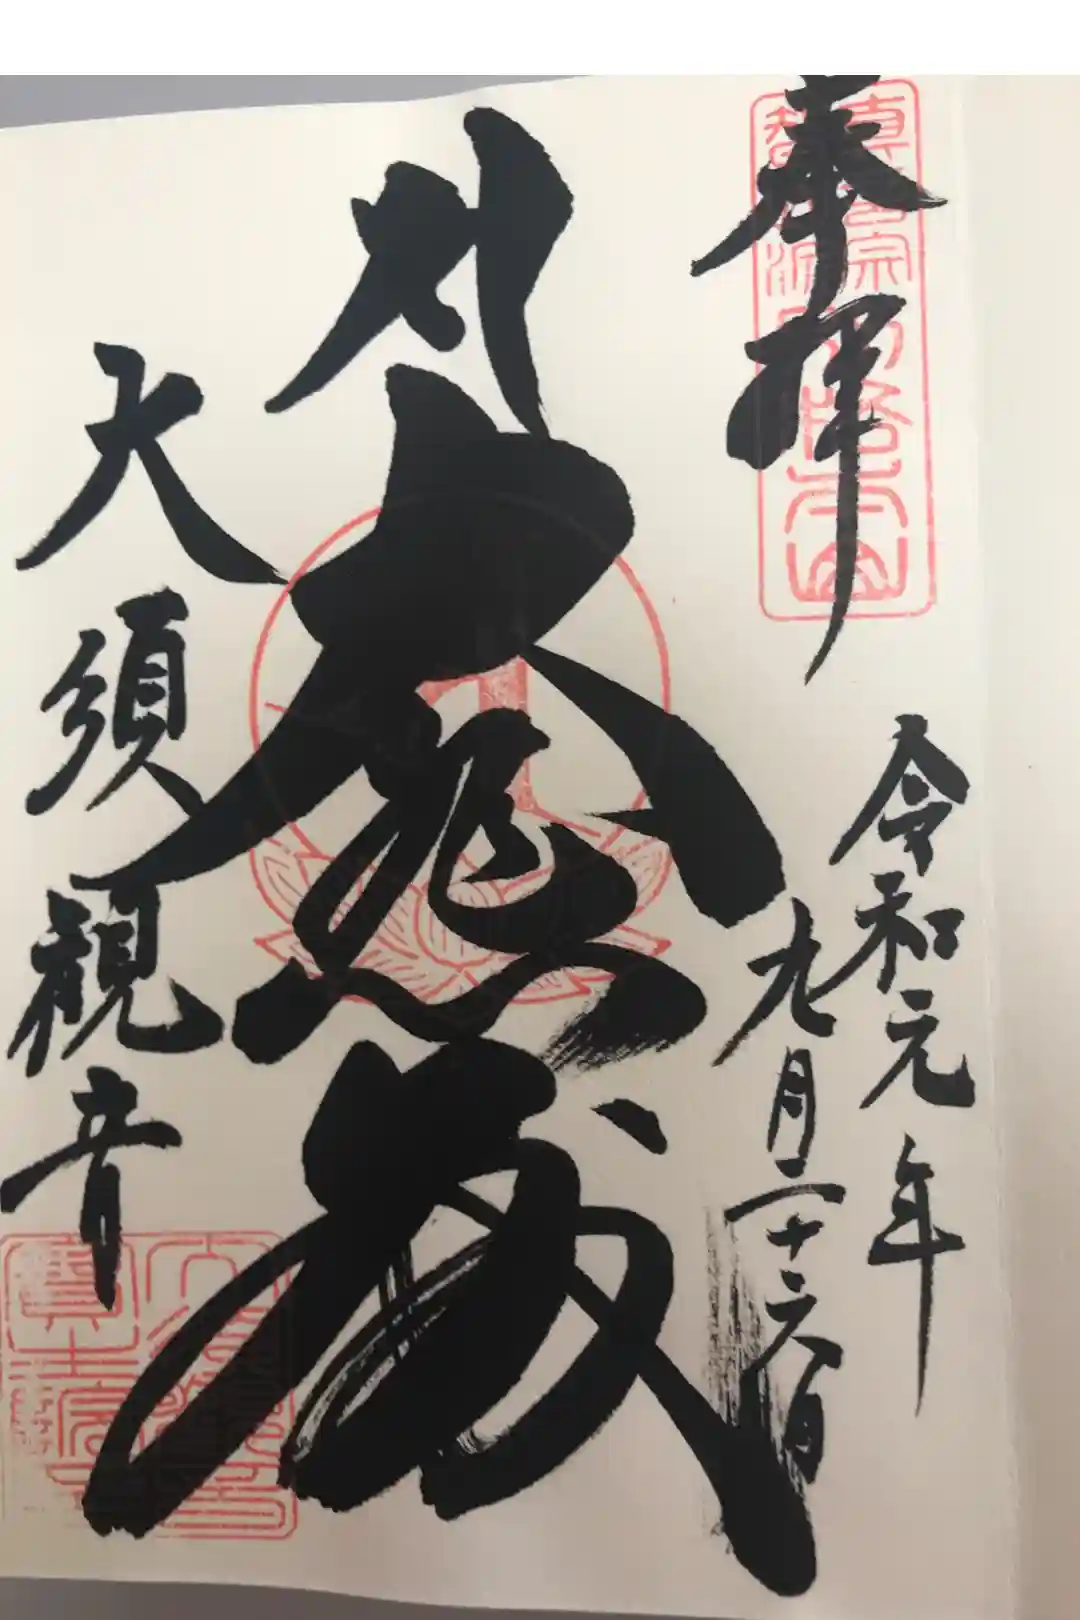 奉拝
令和元年
九月二十六日
大悲殿
大須観音